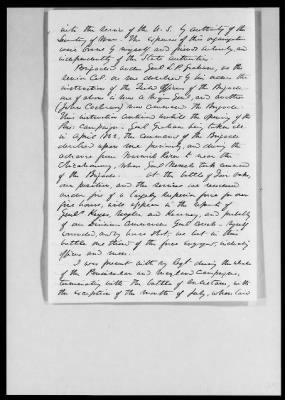 into the service of the U.S. by authority of the
Secretary of War. The expenses of this organization
were borne by myself and friends entirely, and
independently of the State authorities.
Brigaded under Genl. L.P. Graham, as the
senior Col. on me devolved by his order the
instruction of the Field Officers of the Brigade
one of whom is now a Brigr. Genl., and another
(John Cochrane) now commands the Brigade.
This instruction continued until the opening of the
Pen. campaign. Genl. Graham being taken ill
in April 1862, the command of the Brigade
devolved upon me previously, and during the
advance from Warwick River to near the
Chickahominy, when Genl. took command
of the Brigade. At the battle of Fair Oaks,
our position, and the service we rendered
under fire of a largely superior force for over
five hours, will appear in the reports of
Genls. Keyes, Naglee and Kearney, and probably
of our Division Commander Genl. Couch. Myself
wounded, and my horse shot; we lost in this
battle one third of the force engaged, including
officers and men.
I was present with my Regt. during the whole
of the Peninsular and Maryland Campaigns,
terminating with the battle of Antietam, with
the exception of the month of July, when I was